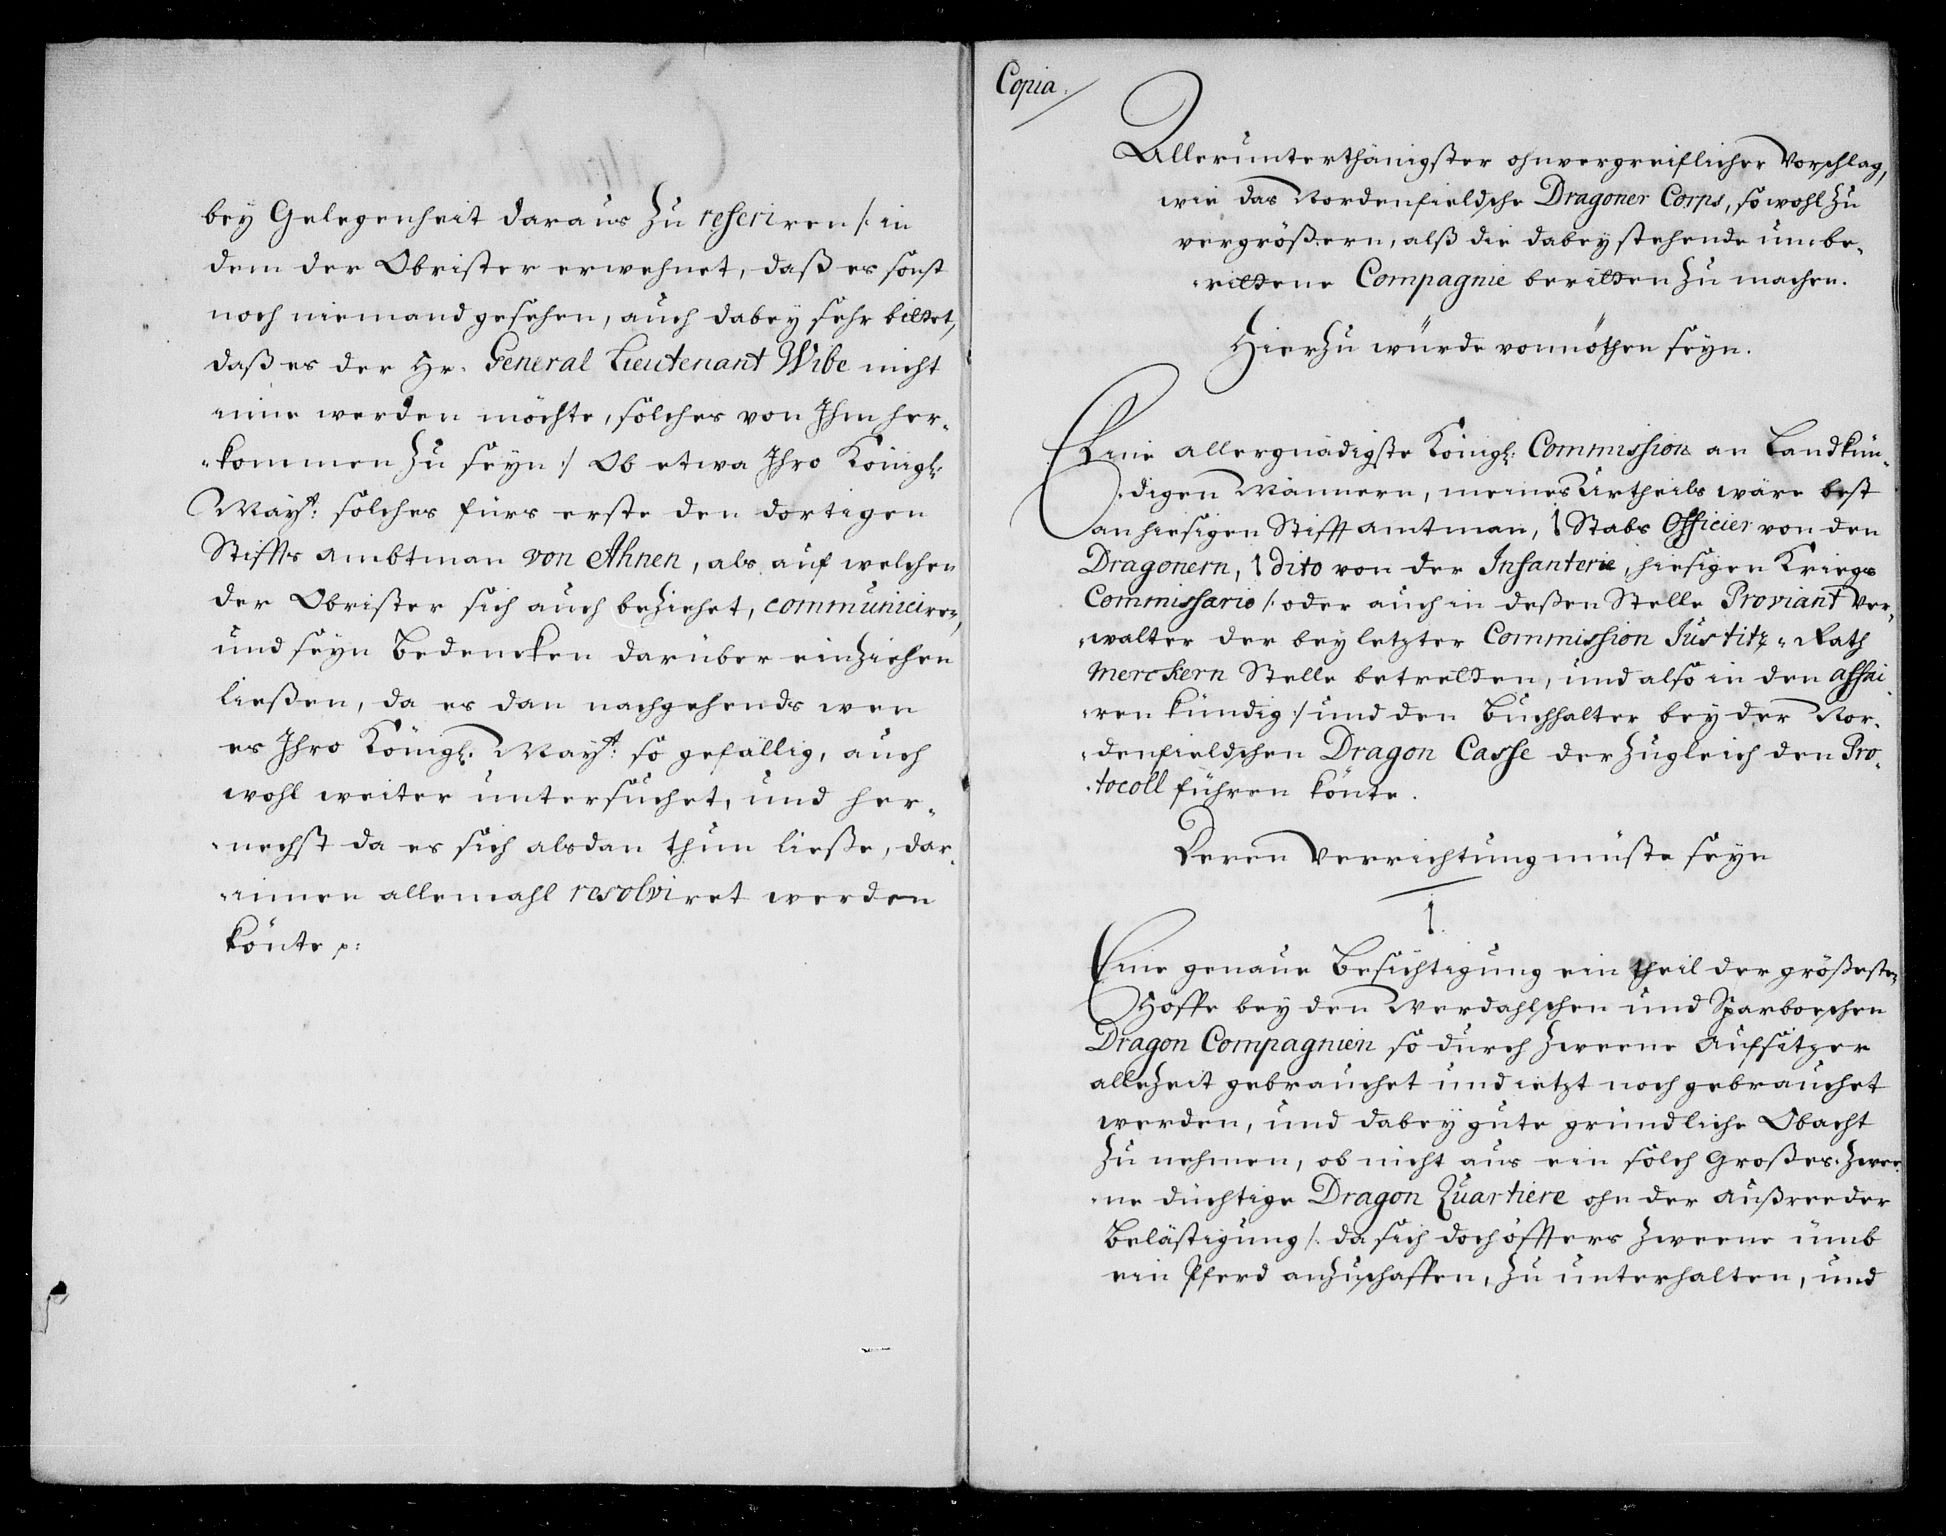 bey Gelegenheit daraus zu referiren /: in
dem der Obrister erwehnet, daß es sonst
noch niemand gesehen, auch dabey sehr bittet,
daß es der Hr. General Lieutenant Wibe nicht
inne werden möchte, solches von Ihm her„
„kommen zu seyn :/ Ob etwa Ihro Königl:
Mayt: solches fürs erste den dortigen
Stiffts ambtman von Ahnen, als auf welchen
der Obrister sich auch beziehet, communiciren,
und seyn Bedencken darüber einziehen
ließen, da es dan nachgehends wen
es Ihro Königl: Mayt: so gefällig, auch
wohl weiter untersuchet, und her„
„nechst da es sich alsdan thun ließe, dar„
„innen allemahl resolviret werden
könte p:
Copia.
Allerunterthänigster ohnvergreiflicher Vorschlag,
wie das Nordenfieldsche Dragoner Corps, so wohl zu
vergrößern, alß die dabey stehende unbe„
„rittene Compagnie beritten zu machen.
Hierzu würde vonnöthen seyn.
Eine allergnädigste Königl: Commission an Landkün„
„digen Männern, meines Urtheils wäre best
an hiesigen Stifftamtman, 1 Stabs Officier von den
Dragonern, 1 dito von der Infanterie, hiesigen Kriegs
Commissario /: oder auch in deßen Stelle Proviant Ver„
„walter der bey letzter Commission Justitz„Rath
Merckern Stelle betretten, und also in den affai„
„ren kündig :/ und den Buchhalter bey der Nor„
„denfieldschen Dragon Casse der zugleich den Pro„
„tocoll führen könte.
Deren Verrichtung müste seyn
1.
Eine genaue Besichtigung ein theil der größesten
Höffe bey den Werdahlschen und Sparboeschen
Dragon Compagnien so durch zweene Aufsitzer
allezeit gebrauchet und ietzt noch gebrauchet
werden, und dabey gute gründliche Obacht
zu nehmen, ob nicht aus ein solch Großes zwee„
„ne düchtige Dragon Quartiere ohn der Außreeder
Belästigung /: da sich doch öffters zweene ümb
ein Pferd anzuschaffen, zu unterhalten, und